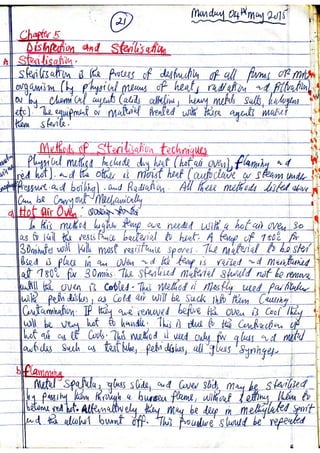 Monday 04th May 2015
(21)
Chapter 5
Disinfection and Sterilisation
A Sterilisation.
Sterilisation is the process of destruction of all forms of micro
organism (by physical means of heat, radiation and filtration
or by chemical agents (acids alkaline, heavy metal salts, halogens
etc). The equipment or material treated with these agents makes
them sterile.
Methods of Sterilisation techniques
Physical method include dry heat (hot air oven), flamming and
red hot). and the other is moist heat (autoclave or steam under
pressure and boiling). and Radiation. All these methods listed above
can be carryout Mechanically
a) Hot air Oven.
In this method higher temp are needed with a hot air oven so
as to kill the resistance bacterial to heat. A temp of 180°c for
30minutes will kill most resistance spores. The material to be ster
ilised is place in an oven and the temp is raised and maintained
at 180°c for 30mins. The sterilised material should not be remove
until the oven is cooled. This method is mostly used particular
with petri dishes, as cold air will be suck into them causing
contamination. If they are removed before the oven is cool they
will be very hot to handle. This is due to the contraction of
hot air as it cools. This method is used only for glass and metal
articles such as test tube, petri dishes, all glass syringes.
b) flamming
Metal spatula, glass slide, and cover slide, may be sterilised
by passing them through a bunsen flame, without letting them to
become red hot. Alternatively they may be deep in methylated spirit
and the alcohol burnt off. This procedure should be repeated